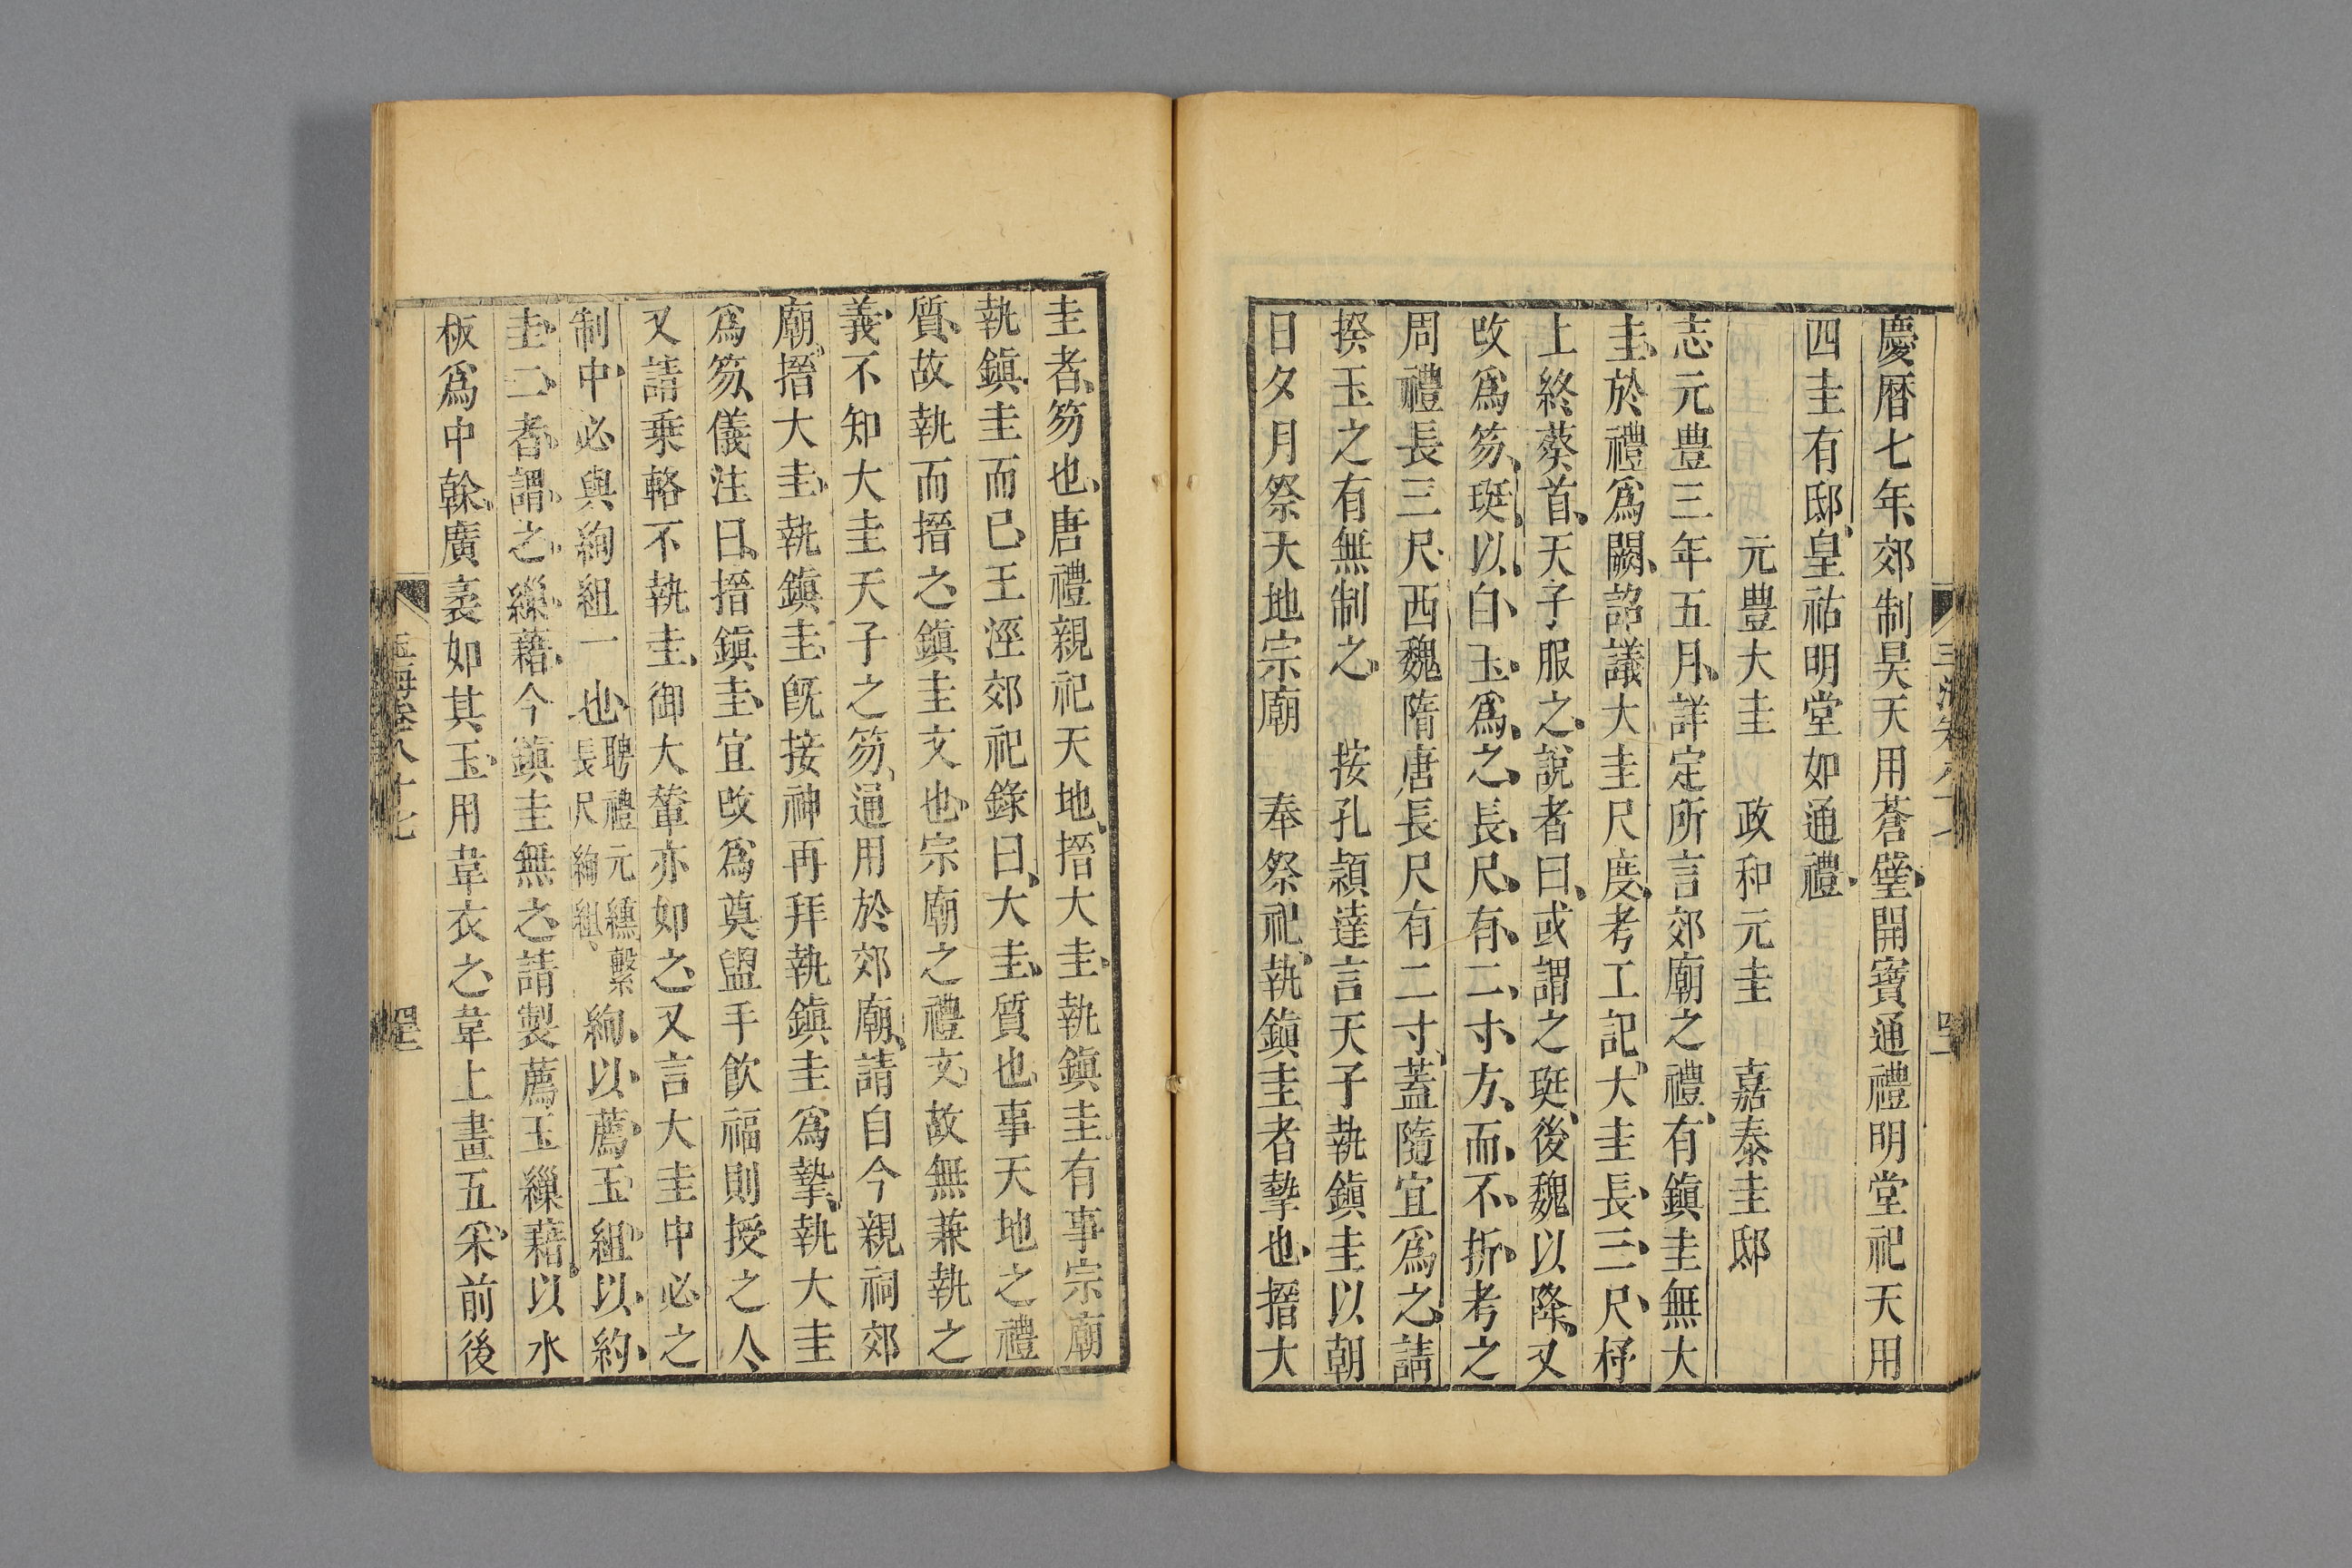 慶曆七年郊制昊天用蒼璧開寶通禮明堂祀天用
四圭有邸皇祐明堂如通禮
元豊大圭 政和元圭 嘉泰圭邸
志元豊三年五月詳定所言郊廟之禮有鎭圭無大
圭於禮爲闕詔議大圭尺度考工記大圭長三尺杼
上終葵首天子服之說者曰或謂之珽後魏以降又
攺爲笏珽以白玉爲之長尺有二寸方而不折考之
周禮長三尺西魏隋唐長尺有二寸蓋隨宜爲之請
揆玉之有無制之 按孔頴達言天子執鎭圭以朝
日夕月祭天地宗廟 奉祭祀執鎭圭者摯也搢大
圭者笏也唐禮親祀天地搢大圭執鎭圭有事宗廟
執鎭圭而已王涇郊祀錄曰大圭質也事天地之禮
質故執而搢之鎭圭文也宗廟之禮文故無兼執之
義不知大圭天子之笏通用於郊廟請自今親祠郊
廟搢大圭執鎭圭旣接神再拜執鎭圭爲摯執大圭
爲笏儀注曰搢鎭圭宜攺爲奠盥手飮福則授之人
又請乗輅不執圭御大輦亦如之又言大圭中必之
制中必與絢組一也聘禮元纁繫長尺絢組絢以薦玉組以約
圭二者謂之繅藉今鎭圭無之請製薦玉繅藉以水
板爲中榦廣袤如其玉用韋衣之韋上畫五采前後
玉海卷八十七